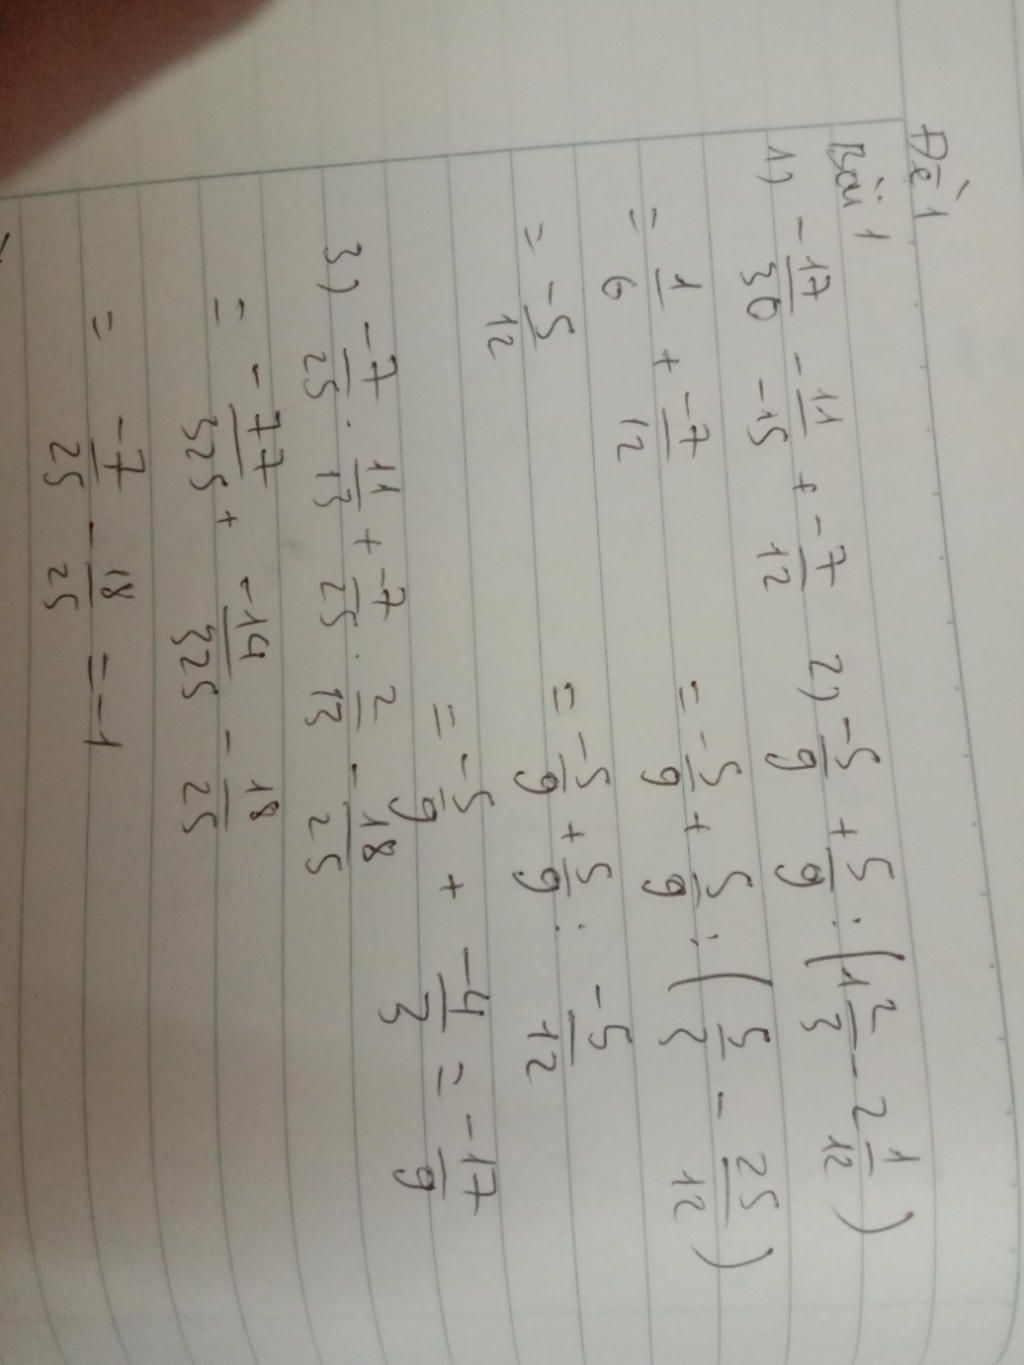 Đề 1
Bài 1
1) -17/30 - 11/-15 + -7/12 2) -5/9 + 5/9 : (1 2/3 - 2 1/12)
= 1/6 + -7/12 = -5/9 + 5/9 : (5/3 - 25/12)
= -5/12 = -5/9 + 5/9 : -5/12
= -5/9 + -4/3 = -17/9
3) -7/25 . 11/13 + -7/25 . 2/13 - 18/25
= -77/325 + -14/325 - 18/25
= -7/25 - 18/25 = -1